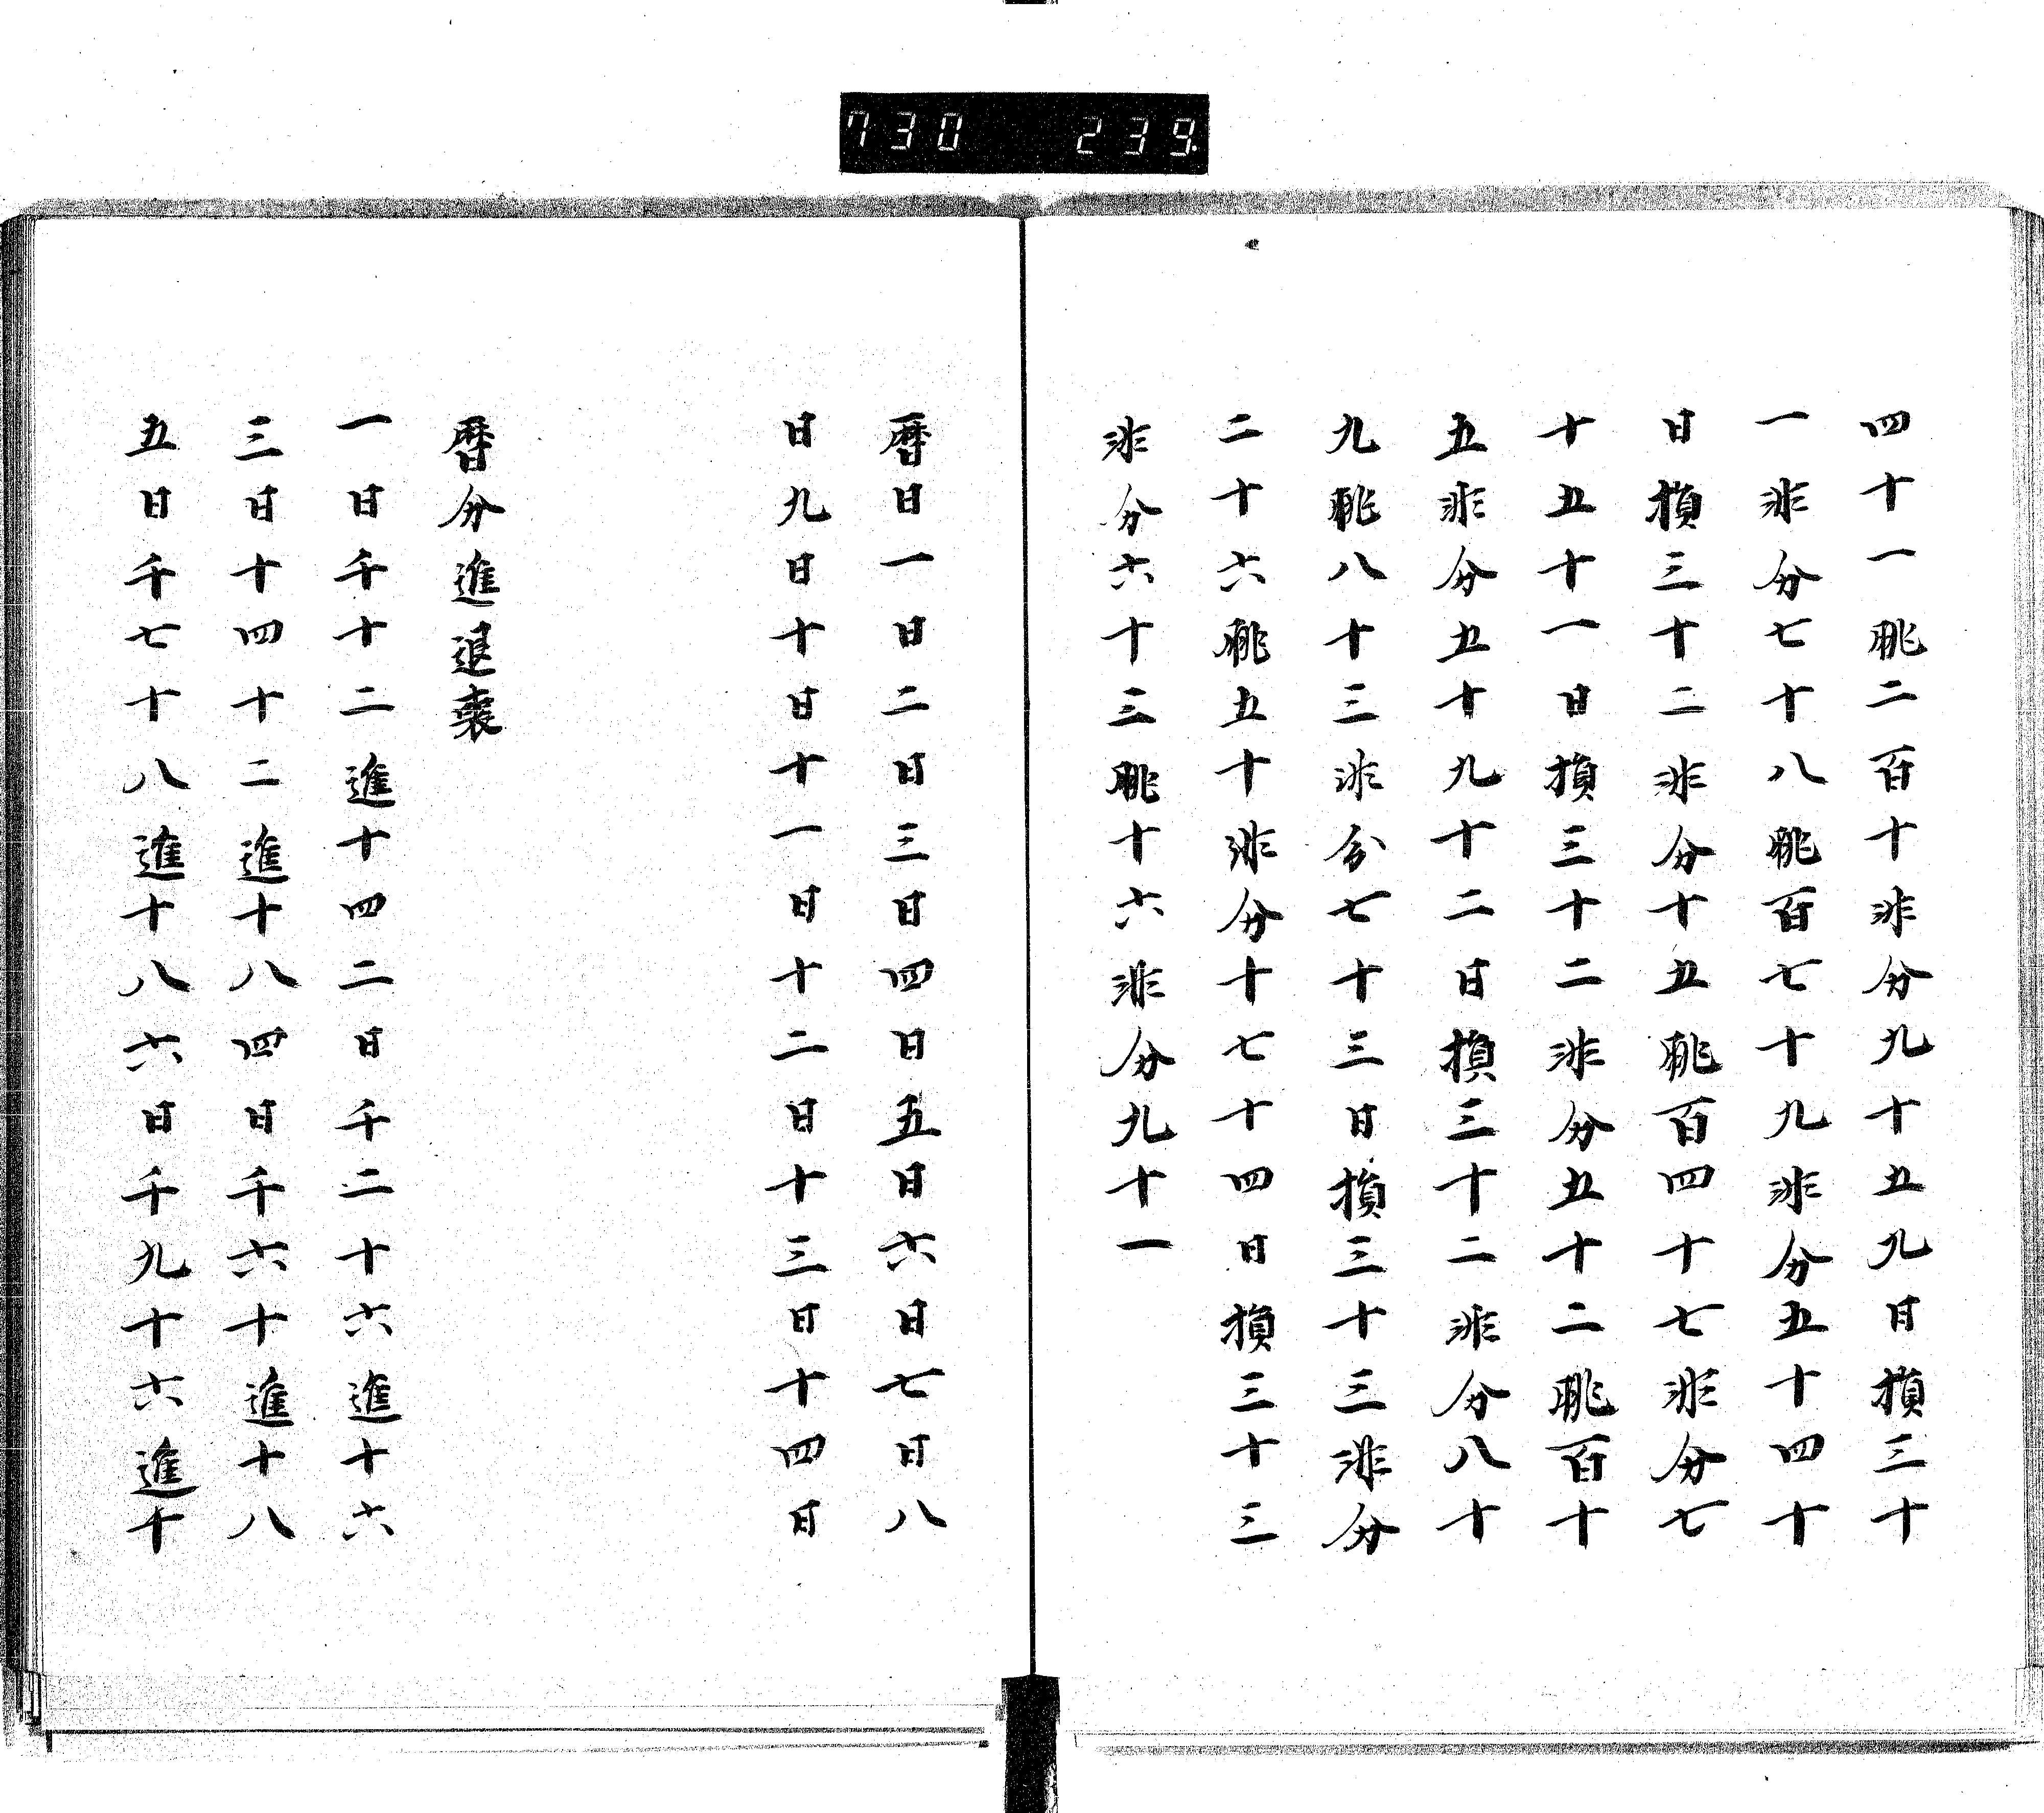 730 239
四十一朓二百十非分九十五九日損三十
一非分七十八朓百七十九非分五十四十
日損三十二非分十五朓百四十七非分七
十五十一日損三十二非分五十二朓百十
五非分五十九十二日損三十二非分八十
九朓八十三非分七十三日損三十三非分
二十六朓五十非分十七十四日損三十三
非分六十三朓十六非分九十一
暦日一日二日三日四日五日六日七日八
日九日十日十一日十二日十三日十四日
暦分進退衰
一日千十二進十四二日千二十六進十六
三日十四十二進十八四日千六十進十八
五日千七十八進十八六日千九十六進十